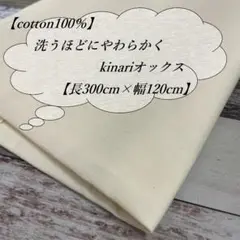 【cotton100%】
洗うほどにやわらかく
kinariオックス
【長300cm×幅120cm】